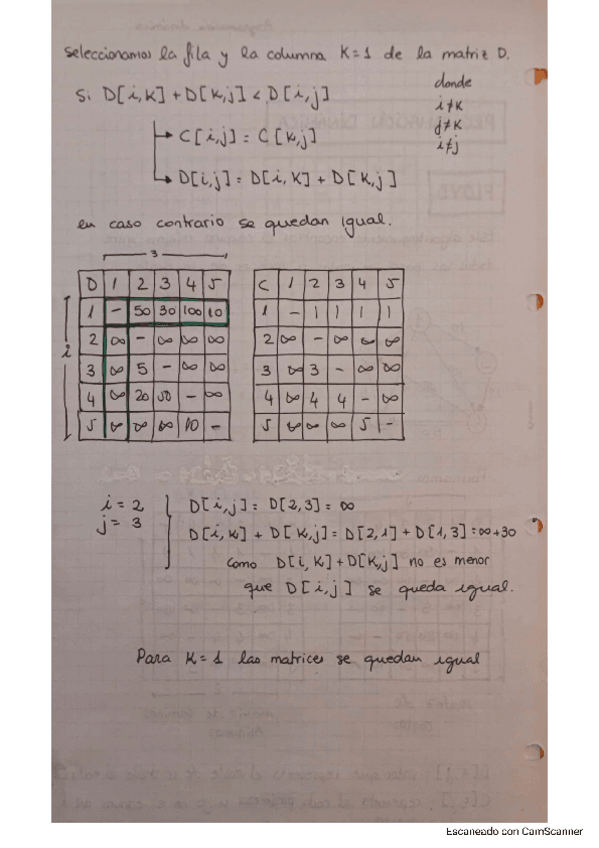 Seleccionamos la fila y la columna K=1 de la matriz D.
Si D[i,K] + D[K,j] < D[i,j]
donde
i≠K
j≠K
i≠j
→ C[i,j] = C[K,j]
→ D[i,j] = D[i,K] + D[K,j]
en caso contrario se quedan igual.
3
D 1 2 3 4 5
1 - 50 30 100 10
2 ∞ - ∞ ∞ ∞
3 ∞ 5 - ∞ ∞
4 ∞ 20 50 - ∞
5 ∞ ∞ ∞ 10 -
i
C 1 2 3 4 5
1 - 1 1 1 1
2 ∞ - ∞ ∞ ∞
3 ∞ 3 - ∞ ∞
4 ∞ 4 4 - ∞
5 ∞ ∞ ∞ 5 -
i = 2
j = 3
D[i,j] = D[2,3] = ∞
D[i,K] + D[K,j] = D[2,1] + D[1,3] = ∞+30
como D[i,K]+D[K,j] no es menor
que D[i,j] se queda igual.
Para K=1 las matrices se quedan igual
Escaneado con CamScanner